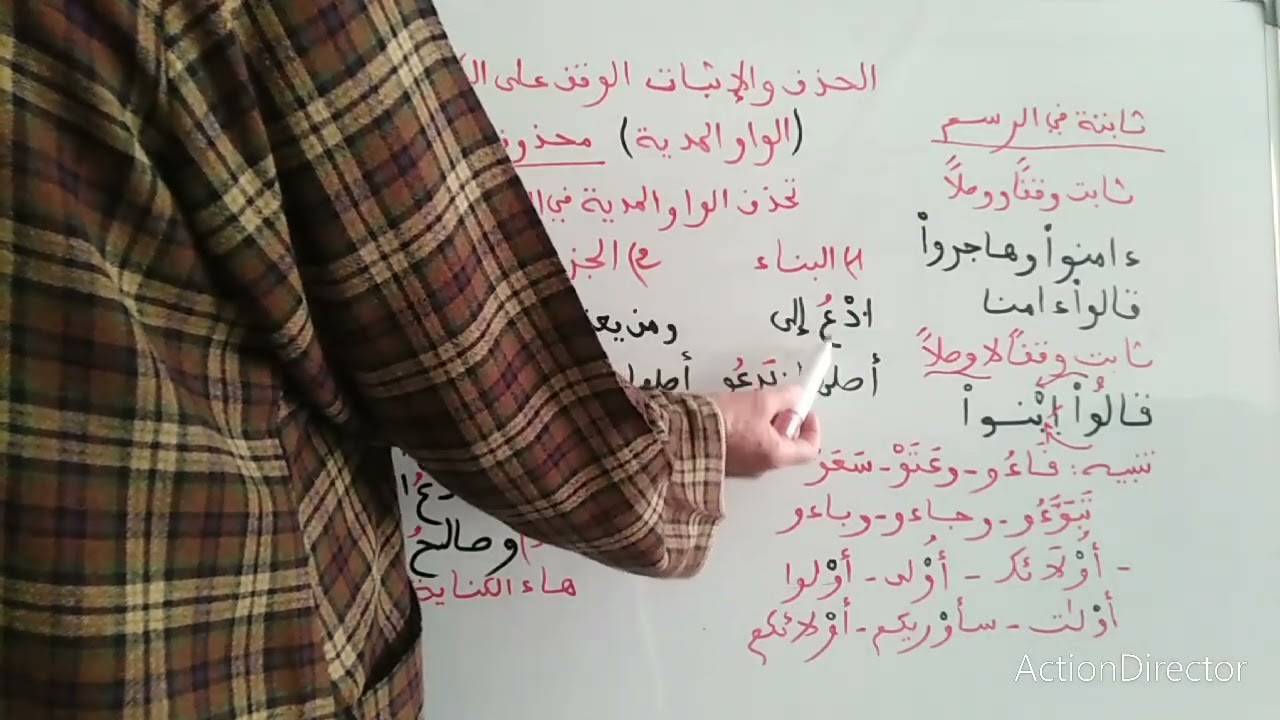 الحذف والإثبات الوقف على
(الواو المدية)
تحذف الواو المدية في
1) البناء 2)
ادْعُ إلى ومن
هاء الكناية
ثابتة في الرسم
ثابت وقفاً ووصلاً
ءامنواْ وهاجرواْ
قالواْ ءامنا
ثابت وقفاً لا وصلاً
قالُواْ ابْنواْ
تنبيه: فاءُو - وعَتَوْ - سَعَوْ
تَبَوَّءُو - وجاءو - وباءو
- أوْلَائك - أوْلى - أوْلوا
أوْلات - سأوْريكم - أوْلائكم
ActionDirector